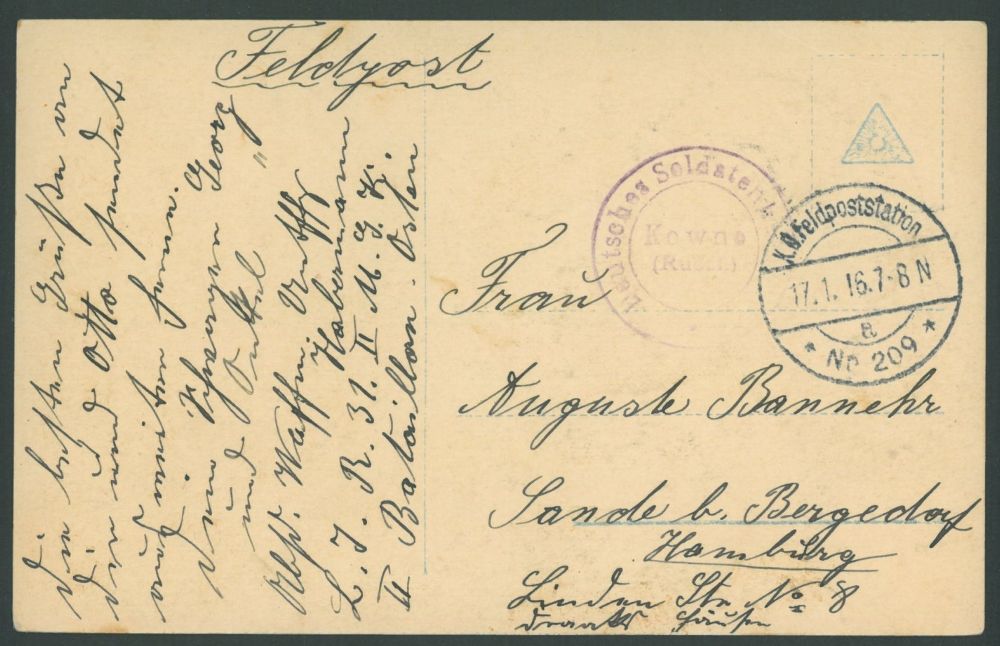 Feldpost
Die besten Grüße von
Dir und Otto sendet
auch weiten
Dein Schwager Georg
und Onkel "
Abs. Waffm. Untffz
Habermann
L. I. R. 31. II M. G. K.
II Bataillon. Osten.
Deutsches Soldatenh
Kowno
(Russl.)
K.D. Feldpoststation
17.1.16.7-8N
a
* No 209 *
Frau
Auguste Bannehr
Sande b. Bergedorf
Hamburg
Linden Str. No 8